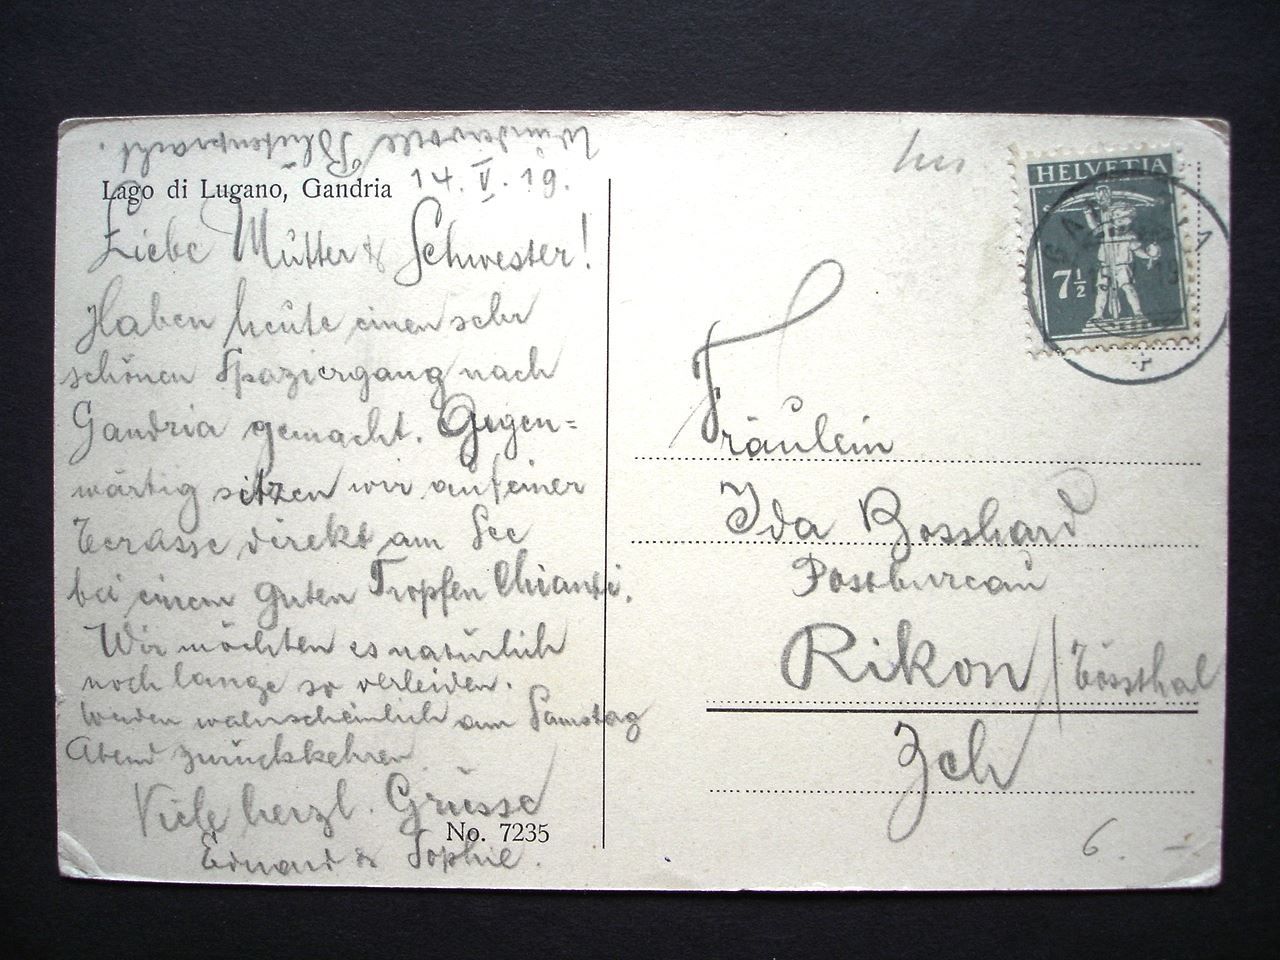 Wundervolle Blütenpracht.
Lago di Lugano, Gandria
14. V. 19.
Liebe Mutter & Schwester!
Haben heute einen sehr
schönen Spaziergang nach
Gandria gemacht. Gegen=
wärtig sitzen wir auf einer
Terasse direkt am See
bei einem guten Tropfen Chianti.
Wir möchten es natürlich
noch lange so erleiden.
Werden wahrscheinlich am Samstag
Abend zurückkehren.
Viele herzl. Grüsse
No. 7235
Eduard & Sophie.
HELVETIA
7½
Fräulein
Ida Bosshard
Postbureau
Rikon / Tössthal
Zch
6. –